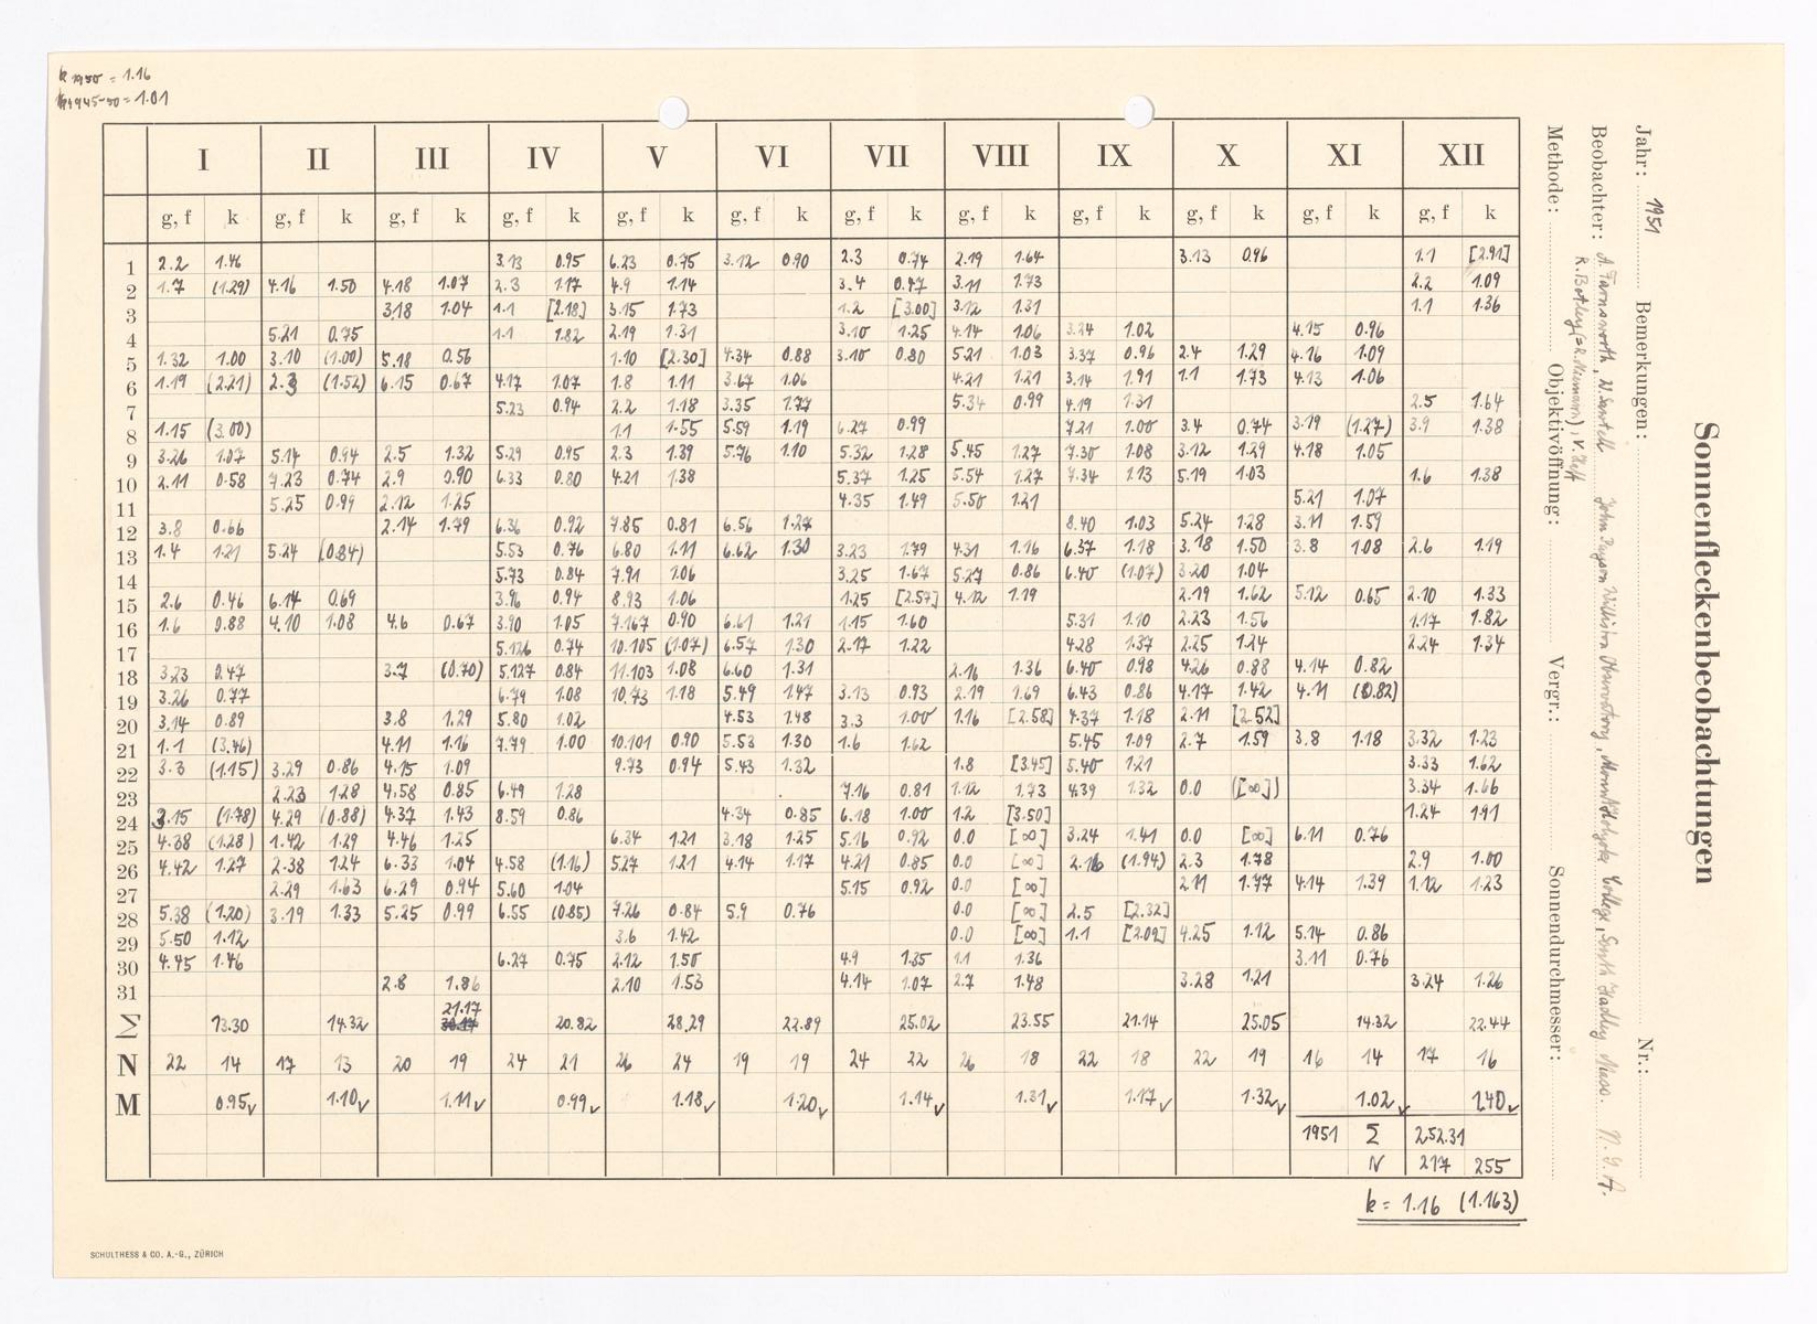 k 1950 = 1.16
k 1945-50 = 1.01
Sonnenfleckenbeobachtungen
Jahr: 1951 Bemerkungen: Nr.:
Beobachter: A. Farnsworth, John Payson Williston Observatory, Mount Holyoke College, South Hadley Mass.
Methode: Objektivöffnung: Vergr.: Sonnendurchmesser:
I II III IV V VI VII VIII IX X XI XII
g, f k g, f k g, f k g, f k g, f k g, f k g, f k g, f k g, f k g, f k g, f k g, f k
1 2.2 1.46 3.13 0.95 6.23 0.75 3.12 0.90 2.3 0.74 2.19 1.64 3.13 0.96 1.1 [2.91]
2 1.7 (1.29) 4.16 1.50 4.18 1.07 2.3 1.17 4.9 1.14 3.4 0.47 3.11 1.73 2.2 1.09
3 3.18 1.04 1.1 [2.18] 3.15 1.73 1.2 [3.00] 3.12 1.31 1.1 1.36
4 5.21 0.75 1.1 1.82 2.19 1.31 3.10 1.25 4.14 1.06 3.24 1.02 4.15 0.96
5 1.32 1.00 3.10 (1.00) 5.18 0.56 1.10 [2.30] 4.34 0.88 3.10 0.80 5.21 1.03 3.37 0.96 2.4 1.29 4.16 1.09
6 1.19 (2.21) 2.3 (1.52) 6.15 0.67 4.17 1.07 1.8 1.11 3.67 1.06 4.21 1.21 3.14 1.91 1.1 1.73 4.13 1.06
7 5.23 0.94 2.2 1.18 3.35 1.77 5.34 0.99 4.19 1.31 2.5 1.64
8 1.15 (3.00) 1.1 1.55 5.59 1.19 6.27 0.99 7.21 1.00 3.4 0.74 3.19 (1.27) 3.9 1.38
9 3.26 1.07 5.14 0.94 2.5 1.32 5.29 0.95 2.3 1.39 5.76 1.10 5.32 1.28 5.45 1.27 7.30 1.08 3.12 1.29 4.18 1.05
10 2.11 0.58 7.23 0.74 2.9 0.90 6.33 0.80 4.21 1.38 5.37 1.25 5.54 1.27 7.34 1.13 5.19 1.03 1.6 1.38
11 5.25 0.99 2.12 1.25 4.35 1.49 5.50 1.21 5.21 1.07
12 3.8 0.66 2.14 1.79 6.36 0.92 7.85 0.81 6.56 1.27 8.40 1.03 5.24 1.28 3.11 1.59
13 1.4 1.21 5.24 (0.84) 5.53 0.76 6.80 1.11 6.62 1.30 3.23 1.79 4.31 1.16 6.37 1.18 3.18 1.50 3.8 1.08 2.6 1.19
14 5.73 0.84 7.91 1.06 3.25 1.67 5.27 0.86 6.40 (1.07) 3.20 1.04
15 2.6 0.46 6.14 0.69 3.96 0.94 8.93 1.06 1.25 [2.57] 4.12 1.19 2.19 1.62 5.12 0.65 2.10 1.33
16 1.6 0.88 4.10 1.08 4.6 0.67 3.90 1.05 7.167 0.90 6.61 1.21 1.15 1.60 5.31 1.10 2.23 1.56 1.17 1.82
17 5.126 0.74 10.105 (1.07) 6.57 1.30 2.17 1.22 4.28 1.37 2.25 1.24 2.24 1.34
18 3.23 0.47 3.7 (0.70) 5.127 0.84 11.103 1.08 6.60 1.31 2.16 1.36 6.40 0.98 4.26 0.88 4.14 0.82
19 3.26 0.77 6.79 1.08 10.73 1.18 5.49 1.47 3.13 0.93 2.19 1.69 6.43 0.86 4.17 1.42 4.11 (0.82)
20 3.14 0.89 3.8 1.29 5.80 1.02 4.53 1.48 3.3 1.00 1.16 [2.58] 4.37 1.18 2.11 [2.52]
21 1.1 (3.46) 4.11 1.16 7.79 1.00 10.101 0.90 5.53 1.30 1.6 1.62 5.45 1.09 2.7 1.59 3.8 1.18 3.32 1.23
22 3.3 (1.15) 3.29 0.86 4.15 1.09 9.73 0.94 5.43 1.32 1.8 [3.45] 5.40 1.21 3.33 1.62
23 2.23 1.28 4.58 0.85 6.49 1.28 7.16 0.81 1.12 1.73 4.39 1.32 0.0 ([∞]) 3.34 1.66
24 3.15 (1.78) 4.29 (0.88) 4.37 1.43 8.59 0.86 4.34 0.85 6.18 1.00 1.2 [3.50] 1.24 1.91
25 4.38 (1.28) 1.42 1.29 4.46 1.25 6.34 1.21 3.18 1.25 5.16 0.92 0.0 [∞] 3.24 1.41 0.0 [∞] 6.11 0.76
26 4.42 1.27 2.38 1.24 6.33 1.04 4.58 (1.16) 5.27 1.21 4.14 1.17 4.21 0.85 0.0 [∞] 2.16 (1.94) 2.3 1.78 2.9 1.00
27 2.29 1.63 6.29 0.94 5.60 1.04 5.15 0.92 0.0 [∞] 2.11 1.77 4.14 1.39 1.12 1.23
28 5.38 (1.20) 3.19 1.33 5.25 0.99 6.55 (0.85) 7.26 0.84 5.9 0.76 0.0 [∞] 2.5 [2.32]
29 5.50 1.12 3.6 1.42 0.0 [∞] 1.1 [2.09] 4.25 1.12 5.14 0.86
30 4.45 1.46 6.27 0.75 2.12 1.50 4.9 1.35 1.1 1.36 3.11 0.76
31 2.8 1.86 2.10 1.53 4.14 1.07 2.7 1.48 3.28 1.21 3.24 1.26
Σ 13.30 14.32 21.17 20.82 28.29 22.89 25.02 23.55 21.14 25.05 14.32 22.44
N 22 14 17 13 20 19 24 21 26 24 19 19 24 22 26 18 22 18 22 19 16 14 17 16
M 0.95 1.10 1.11 0.99 1.18 1.20 1.14 1.31 1.17 1.32 1.02 1.40
1951 Σ 252.31
N 217 255
k = 1.16 (1.163)
SCHULTHESS & CO. A.-G., ZÜRICH